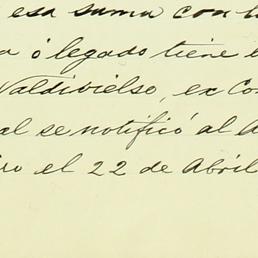 esa suma con
ó legado tiene
Valdivielso, ex
se notificó al
el 22 de Abril